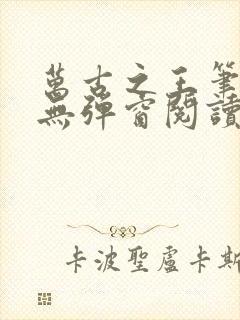 萬古之王筆
無彈窗閱讀
卡波聖盧卡斯